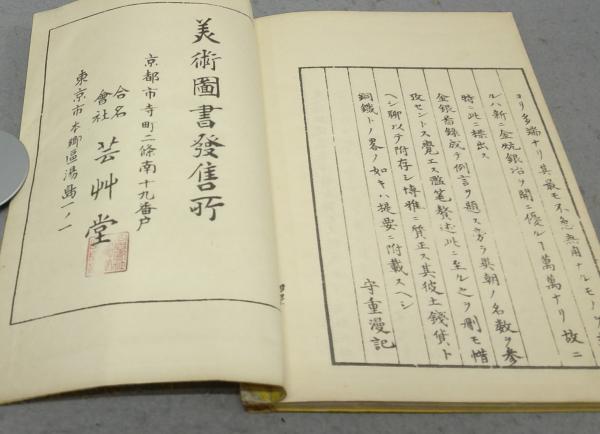 ヨリ多端ナリ其最モ不急無用ナルモノ
ルハ新ニ金坑銀冶ヲ開ニ優ルヿ萬萬ナリ故ニ
時ニ此ニ標出ス
金銀図録成テ例言ヲ題ス方テ異朝ノ名数ヲ参
攷セントス覚エス濫筆贅述此ニ至ル之ヲ刪モ惜
ヘシ聊以テ附存シ博雅ニ質正ス其彼土錢貨ト
銅鐵トノ畧ノ如キハ提要ニ附載スヘシ
守重漫記
美術圖書發售所
京都市寺町二條南十九番戸
合名會社 芸艸堂
東京市本郷區湯島一ノ一